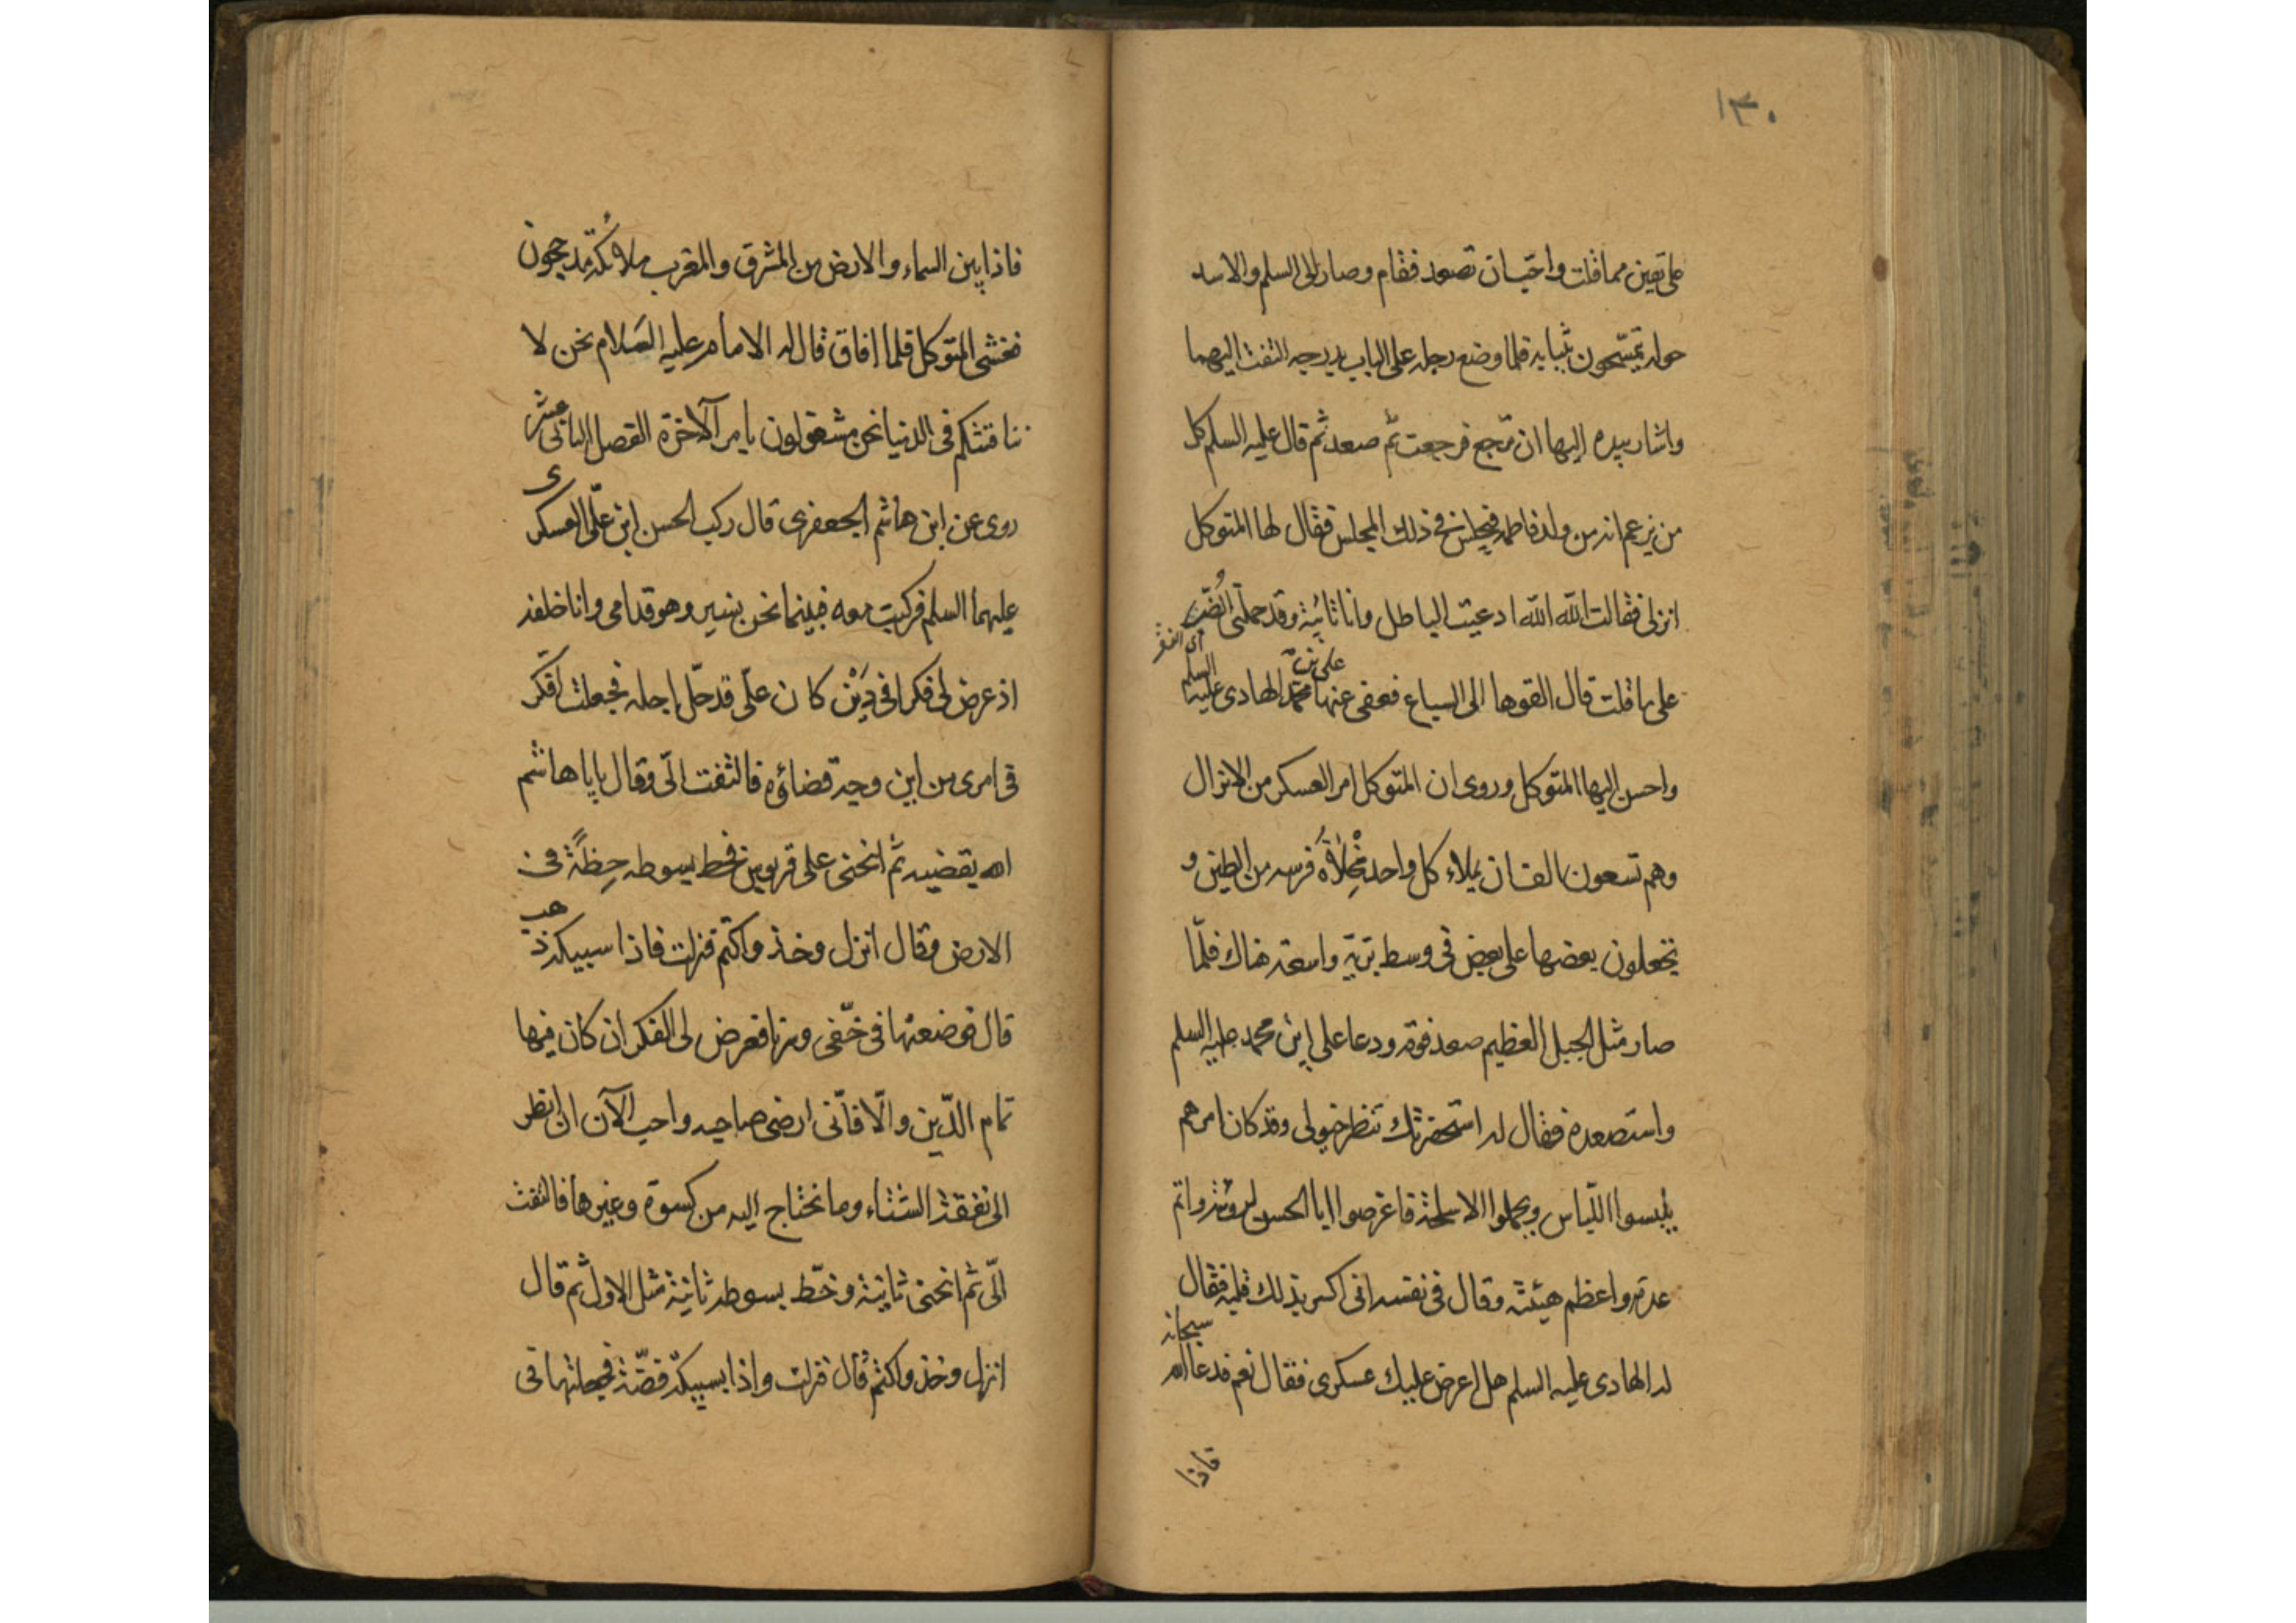 ١٣٠
على يقين مما قلت واحبّ ان تصعد فقام وصار الى السلم والاسد
حوله يتمسّحون بثيابه فلما وضع رجله على الباب يدرجه التفت اليهما
واشار بيده اليها ان ترجع فرجعت ثم صعد ثم قال عليه السلم كل
من يزعم انه من ولد فاطمه فيجلس في ذلك المجلس فقال لها المتوكل
انزلى فقالت الله الله ادعيت الباطل وانا تائبة وقد حملنى الضُّر
اى الفقر
على ما قلت قال القوها الى السباع فعفى عنها على بن محمّد الهادى عليه السلم
واحسن اليها المتوكل وروى ان المتوكل امر العسكر من الاتراك
وهم تسعون الف ان يملاء كل واحد مِخْلاةَ فرسه من الطين و
يجعلون بعضها على بعض فى وسط بريّة واسعة هناك فلمّا
صار مثل الجبل العظيم صعد فوقه ودعا على ابن محمد عليه السلم
واستصعده فقال له استحضرتك تنظر خيولى وقد كان امرهم
يلبسوا اللّباس ويحملوا الاسلحة فاعرضوا ابا الحسن بزينة واتم
عدّة واعظم هيئته وقال فى نفسه انى اكسر بذلك قلبه فقال
له الهادى عليه السلم هل اعرض عليك عسكرى فقال نعم فدعا الله سبحانه
فاذا
فاذا بين السماء والارض من المشرق والمغرب ملائكة مدججون
فغشى المتوكل فلما افاق قال له الامام عليه السّلام نحن لا
ننافتشكم فى الدنيا نحن مشغولون بامر الآخرة الفصل الثانى عشر
روى عن ابن هاشم الجعفرى قال ركب الحسن ابن علىّ العسكرى
عليهما السلم فركبت معه فبينما نحن بنسير وهو قدامى وانا خلفه
اذ عرض لى فكرا فى دَيْن كان علىّ قد حلّ اجله فجعلت افكّر
فى امرى من اين وجه قضاؤه فالتفت الىّ وقال يا باهاشم
الله يقضيه ثم انحنى على قربوس فخط بسوطه خِطّةً فى
الارض وقال انزل وخذ واكتم فنزلت فاذا سبيكة ذهب
قال فوضعتها فى خُفّى وسرنا فعرض لى الفكر ان كان فيها
تمام الدّين والّا فانّى ارضى صاحبه واحب الآن ان انظر
الى نفقة الشتاء وما نحتاج اليه من كسوة وغيرها فالتفت
الىّ ثم انحنى ثانية وخّط بسوطه ثانية مثل الاول ثم قال
انزل وخذ واكتم قال فنزلت واذا بسبيكة فضّة فجعلتها فى